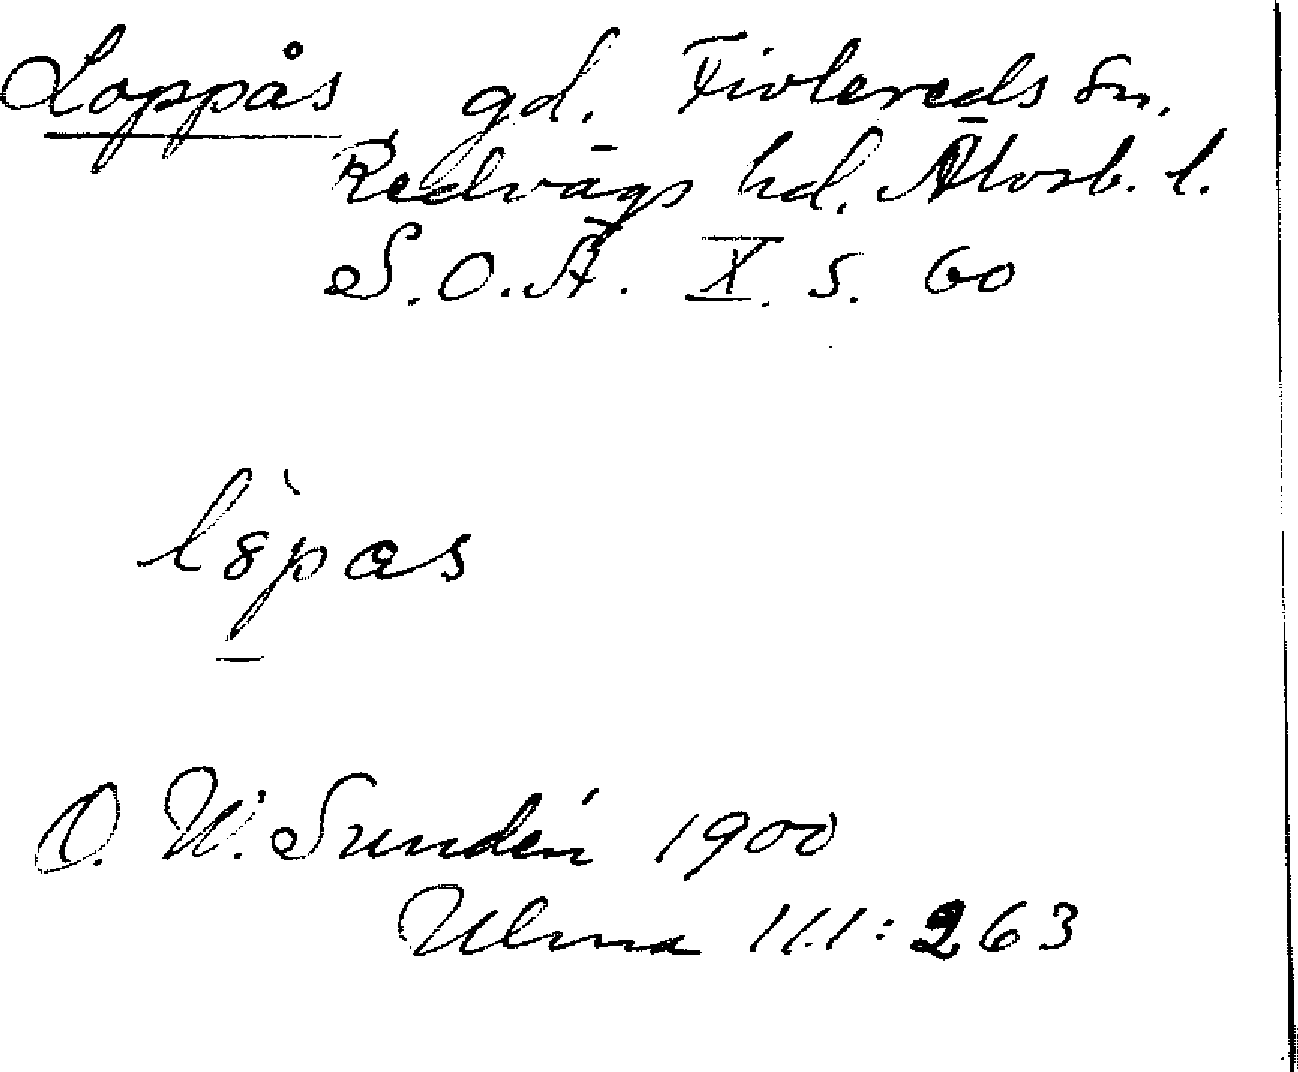 Loppås gd. Fivlereds sn.
Redvägs hd. Älvsb. l.
S.O.Ä. X. s. 60
lo̖pas
O. W. Sundén 1900
Ulma 111:263